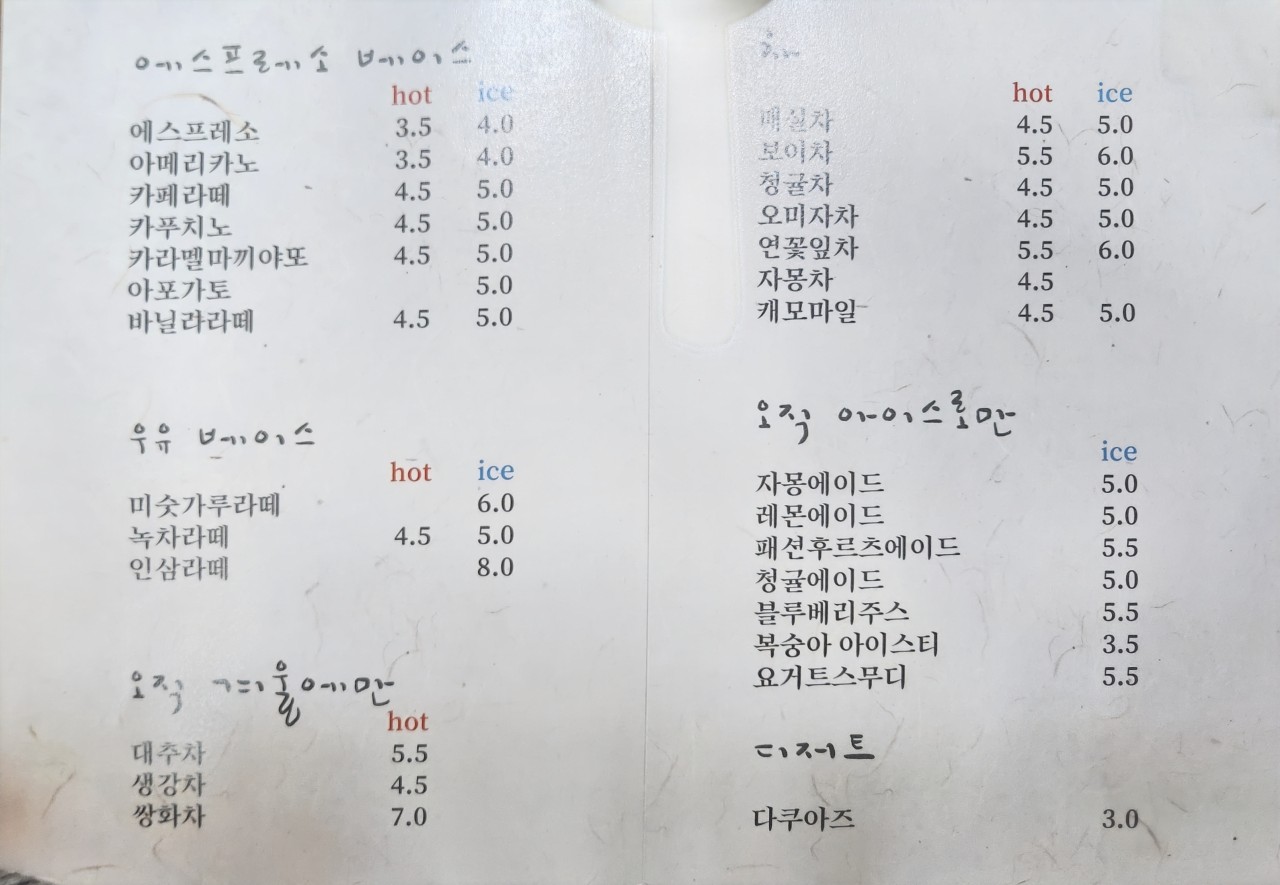 에스프레소 베이스
hot ice
에스프레소 3.5 4.0
아메리카노 3.5 4.0
카페라떼 4.5 5.0
카푸치노 4.5 5.0
카라멜마끼야또 4.5 5.0
아포가토 5.0
바닐랴라떼 4.5 5.0
우유 베이스
hot ice
미숫가루라떼 6.0
녹차라떼 4.5 5.0
인삼라떼 8.0
오직 겨울에만
hot
대추차 5.5
생강차 4.5
쌍화차 7.0
hot ice
매실차 4.5 5.0
보이차 5.5 6.0
청귤차 4.5 5.0
오미자차 4.5 5.0
연꽃잎차 5.5 6.0
자몽차 4.5
캐모마일 4.5 5.0
오직 아이스로만
ice
자몽에이드 5.0
레몬에이드 5.0
패션후르츠에이드 5.5
청귤에이드 5.0
블루베리주스 5.5
복숭아 아이스티 3.5
요거트스무디 5.5
디저트
다쿠아즈 3.0